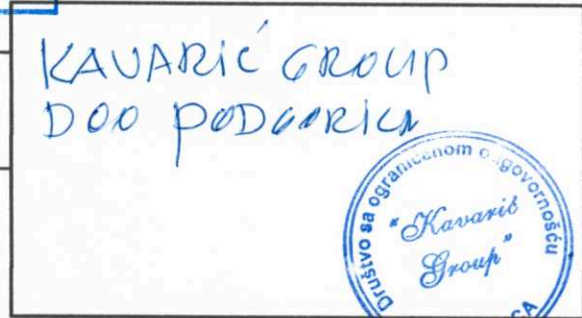 KAVARIĆ GROUP
DOO PODGORICA
Društvo sa ograničenom odgovornošću
"Kavarić
Group"
CA